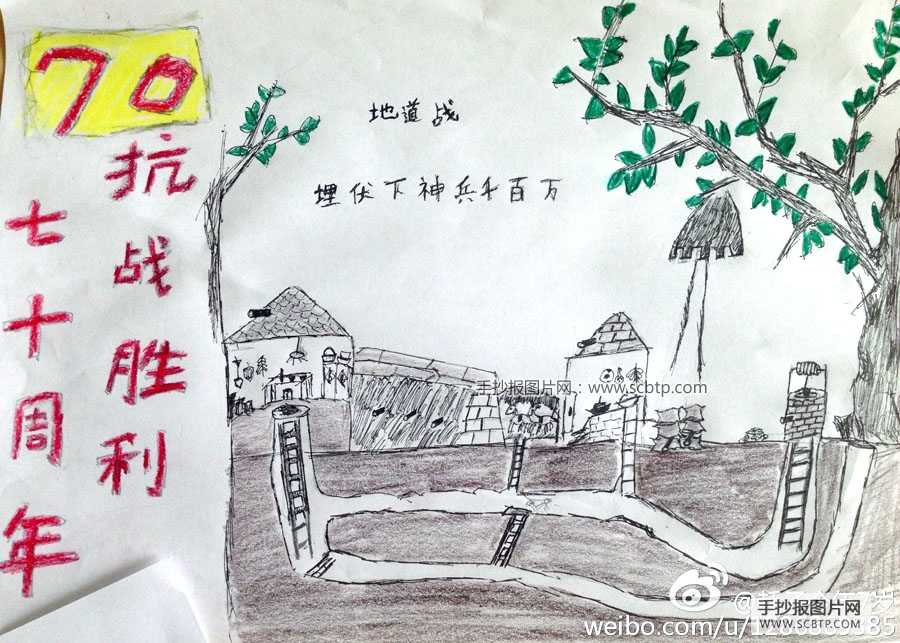 70
抗战胜利
七十周年
地道战
埋伏下神兵千百万
手抄报图片网:www.scbtp.com
手抄报图片网
WWW.SCBTP.COM